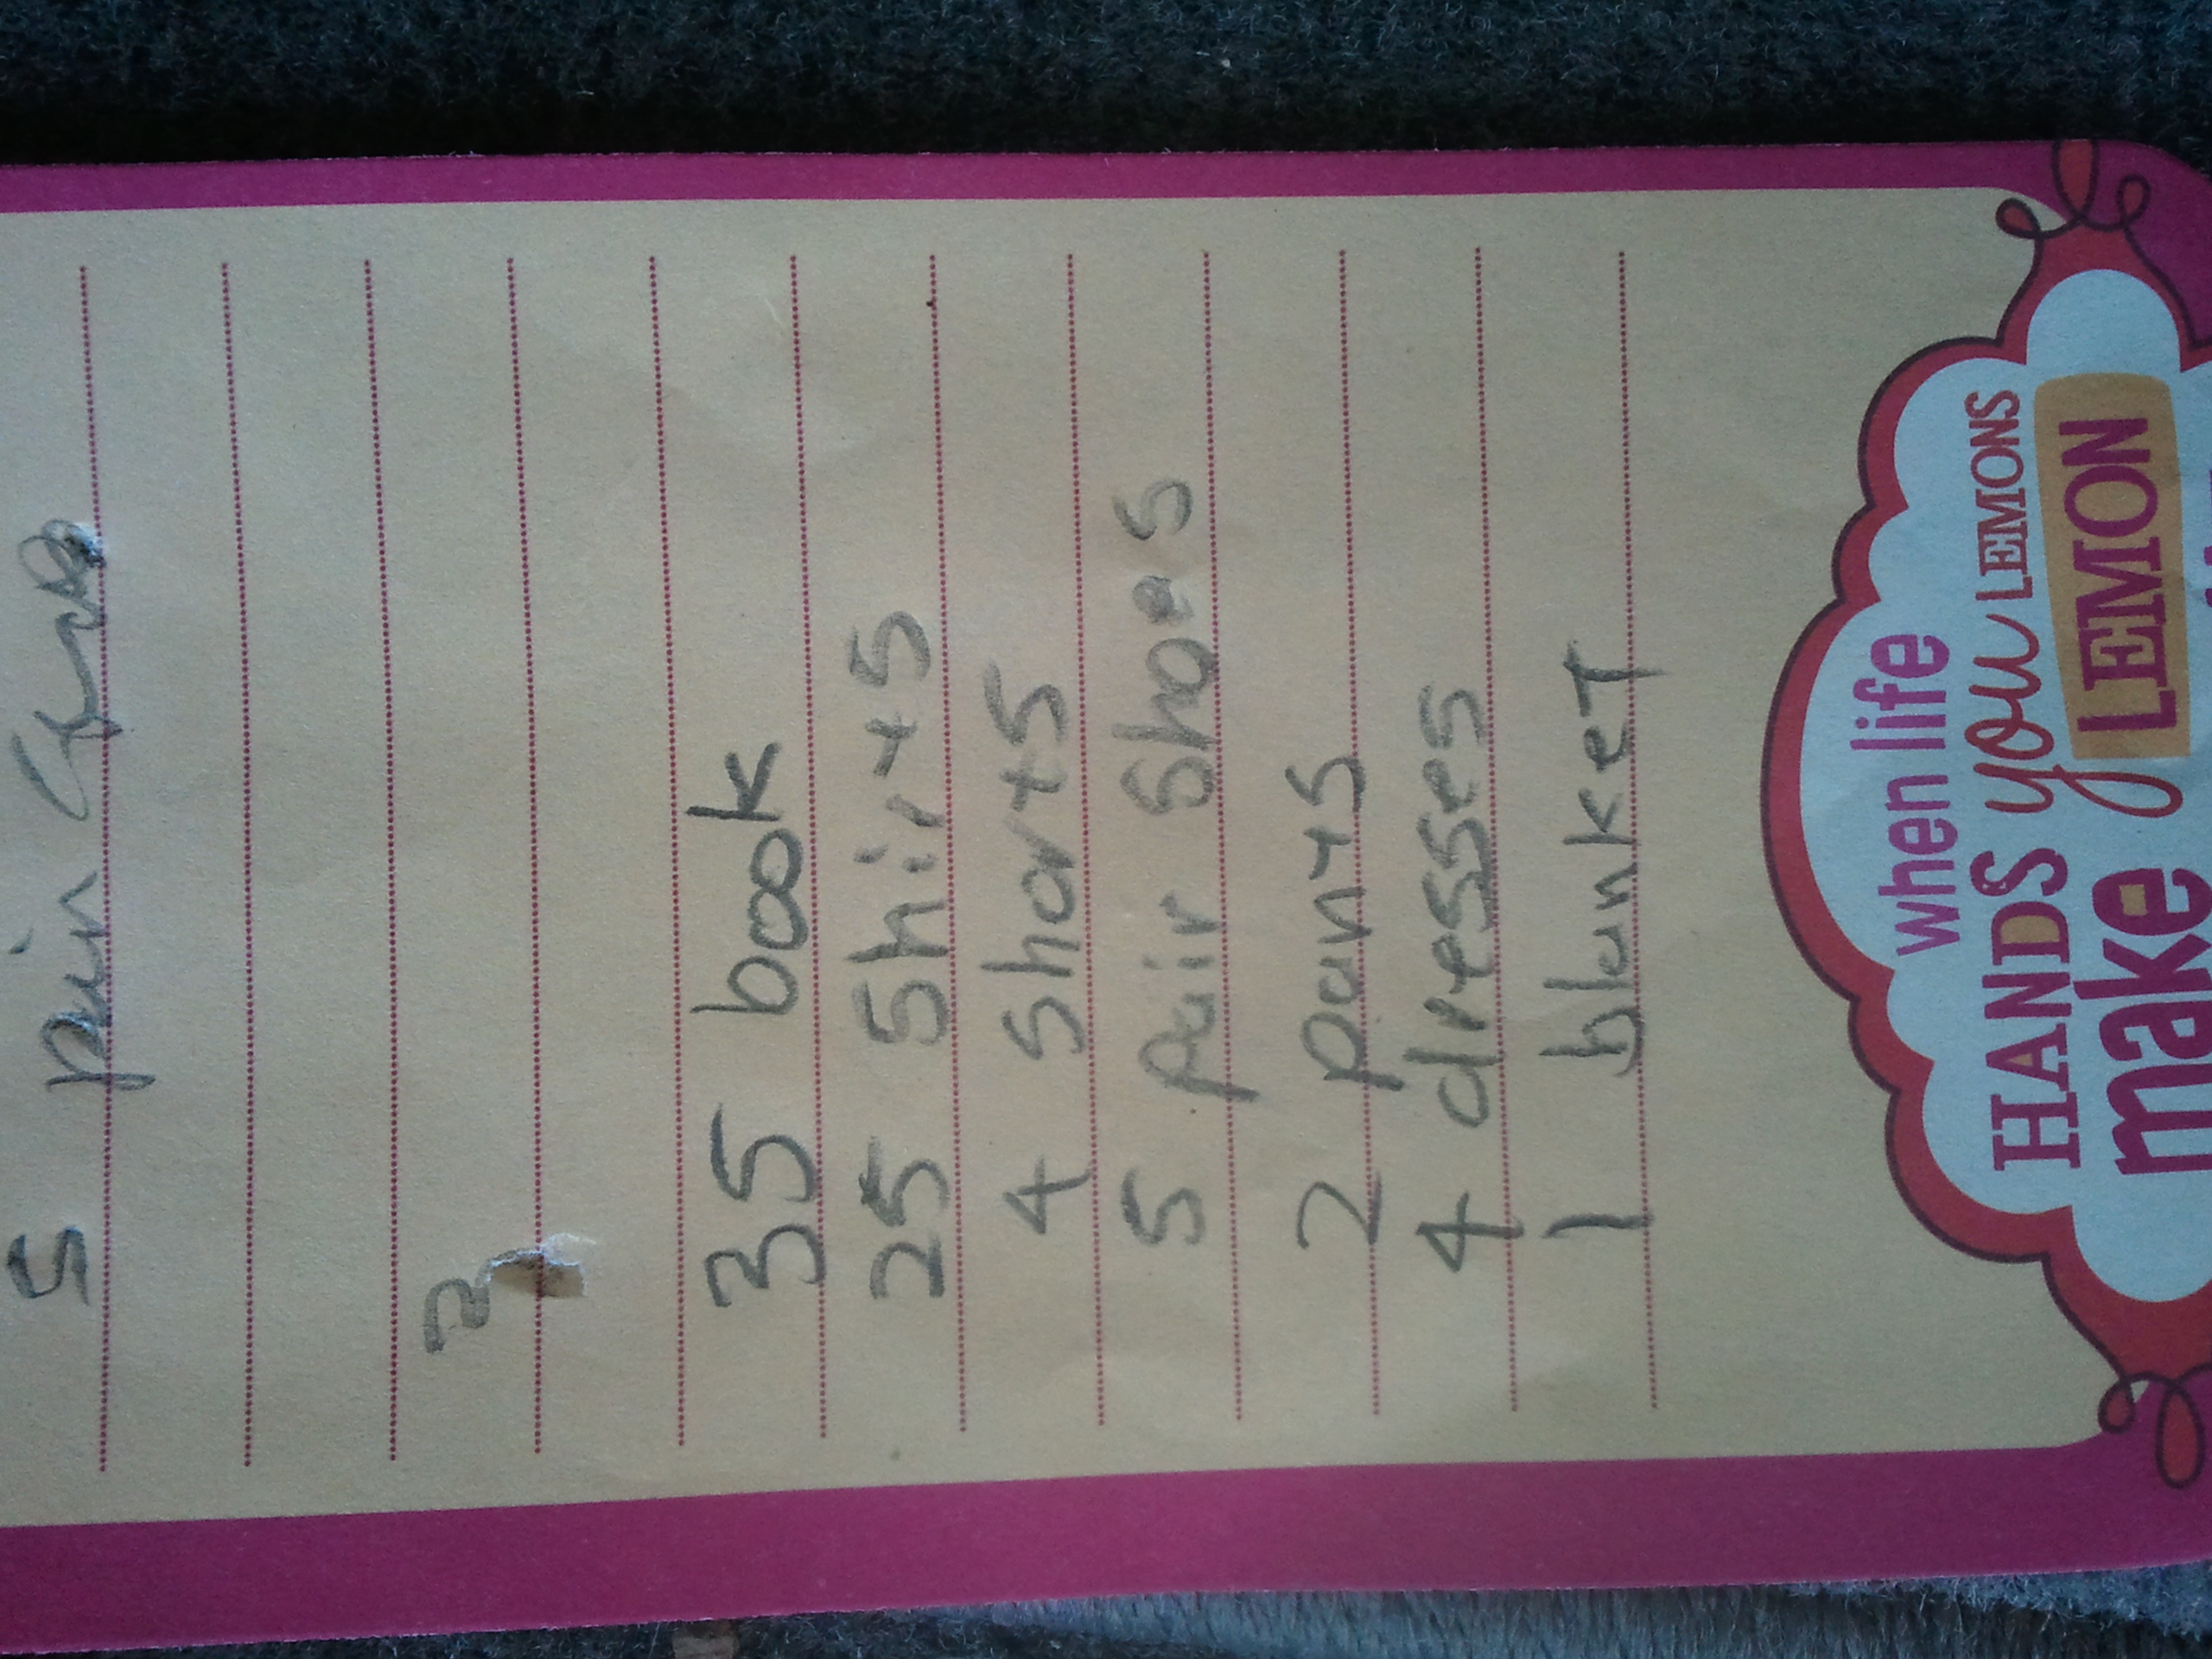 5 pair
2
35 book
25 shirts
4 shorts
5 pair shoes
2 pants
4 dresses
1 blanket
when life
HANDS you LEMONS
make LEMON